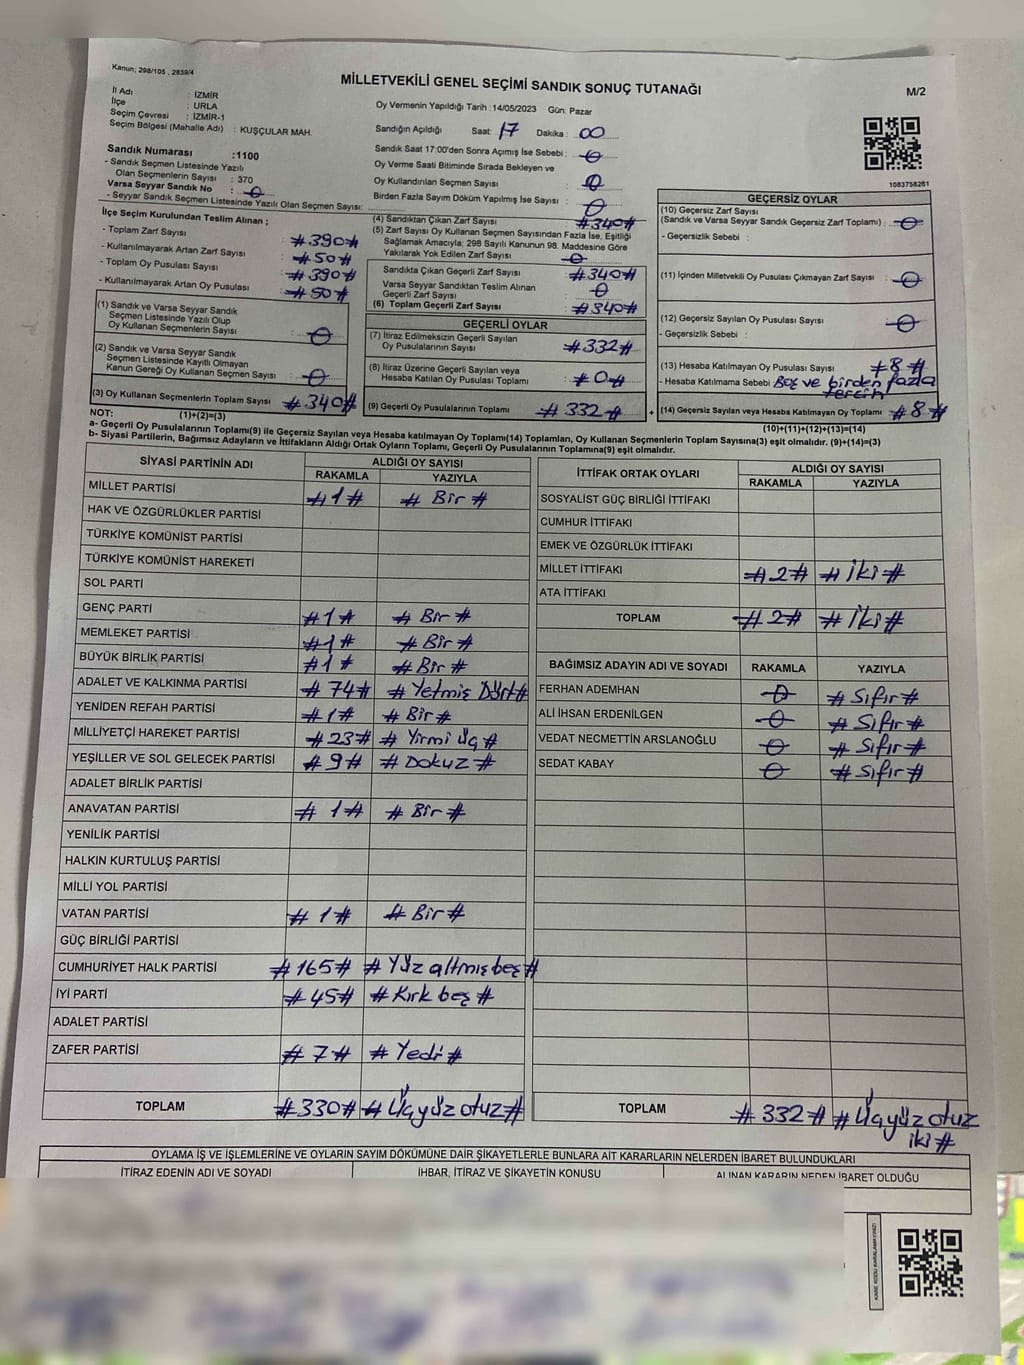 Kanun; 298/105 , 2839/4
MİLLETVEKİLİ GENEL SEÇİMİ SANDIK SONUÇ TUTANAĞI
M/2
İl Adı : İZMİR
İlçe : URLA
Seçim Çevresi : İZMİR-1
Seçim Bölgesi (Mahalle Adı) : KUŞÇULAR MAH.
Sandık Numarası :1100
- Sandık Seçmen Listesinde Yazılı
Olan Seçmenlerin Sayısı : 370
Varsa Seyyar Sandık No : 0
- Seyyar Sandık Seçmen Listesinde Yazılı Olan Seçmen Sayısı:
Oy Vermenin Yapıldığı Tarih : 14/05/2023 Gün: Pazar
Sandığın Açıldığı Saat: 17 Dakika : 00
Sandık Saat 17:00'den Sonra Açımış İse Sebebi : 0
Oy Verme Saati Bitiminde Sırada Bekleyen ve
Oy Kullandırılan Seçmen Sayısı : 0
Birden Fazla Sayım Döküm Yapılmış İse Sayısı : 0
1083758261
İlçe Seçim Kurulundan Teslim Alınan ;
- Toplam Zarf Sayısı : #390#
- Kullanılmayarak Artan Zarf Sayısı : #50#
- Toplam Oy Pusulası Sayısı : #390#
- Kullanılmayarak Artan Oy Pusulası : #50#
(1) Sandık ve Varsa Seyyar Sandık
Seçmen Listesinde Yazılı Olup
Oy Kullanan Seçmenlerin Sayısı : 0
(2) Sandık ve Varsa Seyyar Sandık
Seçmen Listesinde Kayıtlı Olmayan
Kanun Gereği Oy Kullanan Seçmen Sayısı : 0
(3) Oy Kullanan Seçmenlerin Toplam Sayısı : #340#
(4) Sandıktan Çıkan Zarf Sayısı : #340#
(5) Zarf Sayısı Oy Kullanan Seçmen Sayısından Fazla İse, Eşitliği
Sağlamak Amacıyla; 298 Sayılı Kanunun 98. Maddesine Göre
Yakılarak Yok Edilen Zarf Sayısı : 0
Sandıkta Çıkan Geçerli Zarf Sayısı : #340#
Varsa Seyyar Sandıktan Teslim Alınan
Geçerli Zarf Sayısı : 0
(6) Toplam Geçerli Zarf Sayısı : #340#
GEÇERLİ OYLAR
(7) İtiraz Edilmeksizin Geçerli Sayılan
Oy Pusulalarının Sayısı : #332#
(8) İtiraz Üzerine Geçerli Sayılan veya
Hesaba Katılan Oy Pusulası Toplamı : #0#
(9) Geçerli Oy Pusulalarının Toplamı : #332#
GEÇERSİZ OYLAR
(10) Geçersiz Zarf Sayısı
(Sandık ve Varsa Seyyar Sandık Geçersiz Zarf Toplamı) : 0
- Geçersizlik Sebebi :
(11) İçinden Milletvekili Oy Pusulası Çıkmayan Zarf Sayısı : 0
(12) Geçersiz Sayılan Oy Pusulası Sayısı : 0
- Geçersizlik Sebebi :
(13) Hesaba Katılmayan Oy Pusulası Sayısı : #8#
- Hesaba Katılmama Sebebi : Boş ve birden fazla
tercih
+ (14) Geçersiz Sayılan veya Hesaba Katılmayan Oy Toplamı : #8#
NOT: (1)+(2)=(3)
(10)+(11)+(12)+(13)=(14)
a- Geçerli Oy Pusulalarının Toplamı(9) ile Geçersiz Sayılan veya Hesaba katılmayan Oy Toplamı(14) Toplamları, Oy Kullanan Seçmenlerin Toplam Sayısına(3) eşit olmalıdır. (9)+(14)=(3)
b- Siyasi Partilerin, Bağımsız Adayların ve İttifakların Aldığı Ortak Oyların Toplamı, Geçerli Oy Pusulalarının Toplamına(9) eşit olmalıdır.
SİYASİ PARTİNİN ADI ALDIĞI OY SAYISI
RAKAMLA YAZIYLA
MİLLET PARTİSİ #1# # Bir #
HAK VE ÖZGÜRLÜKLER PARTİSİ
TÜRKİYE KOMÜNİST PARTİSİ
TÜRKİYE KOMÜNİST HAREKETİ
SOL PARTİ
GENÇ PARTİ #1# # Bir #
MEMLEKET PARTİSİ #1# # Bir #
BÜYÜK BİRLİK PARTİSİ #1# # Bir #
ADALET VE KALKINMA PARTİSİ #74# # Yetmiş Dört#
YENİDEN REFAH PARTİSİ #1# # Bir #
MİLLİYETÇİ HAREKET PARTİSİ #23# # Yirmi üç #
YEŞİLLER VE SOL GELECEK PARTİSİ #9# # Dokuz #
ADALET BİRLİK PARTİSİ
ANAVATAN PARTİSİ #1# # Bir #
YENİLİK PARTİSİ
HALKIN KURTULUŞ PARTİSİ
MİLLİ YOL PARTİSİ
VATAN PARTİSİ #1# # Bir #
GÜÇ BİRLİĞİ PARTİSİ
CUMHURİYET HALK PARTİSİ #165# # Yüz altmış beş #
İYİ PARTİ #45# # Kırk beş #
ADALET PARTİSİ
ZAFER PARTİSİ #7# # Yedi #
TOPLAM #330# # Üçyüz otuz #
İTTİFAK ORTAK OYLARI ALDIĞI OY SAYISI
RAKAMLA YAZIYLA
SOSYALİST GÜÇ BİRLİĞİ İTTİFAKI
CUMHUR İTTİFAKI
EMEK VE ÖZGÜRLÜK İTTİFAKI
MİLLET İTTİFAKI #2# # İki #
ATA İTTİFAKI
TOPLAM #2# # İki #
BAĞIMSIZ ADAYIN ADI VE SOYADI RAKAMLA YAZIYLA
FERHAN ADEMHAN 0 # Sıfır #
ALİ İHSAN ERDENİLGEN 0 # Sıfır #
VEDAT NECMETTİN ARSLANOĞLU 0 # Sıfır #
SEDAT KABAY 0 # Sıfır #
TOPLAM #332# # Üçyüz otuz
iki #
OYLAMA İŞ VE İŞLEMLERİNE VE OYLARIN SAYIM DÖKÜMÜNE DAİR ŞİKAYETLERLE BUNLARA AİT KARARLARIN NELERDEN İBARET BULUNDUKLARI
İTİRAZ EDENİN ADI VE SOYADI İHBAR, İTİRAZ VE ŞİKAYETİN KONUSU ALINAN KARARIN NEDEN İBARET OLDUĞU